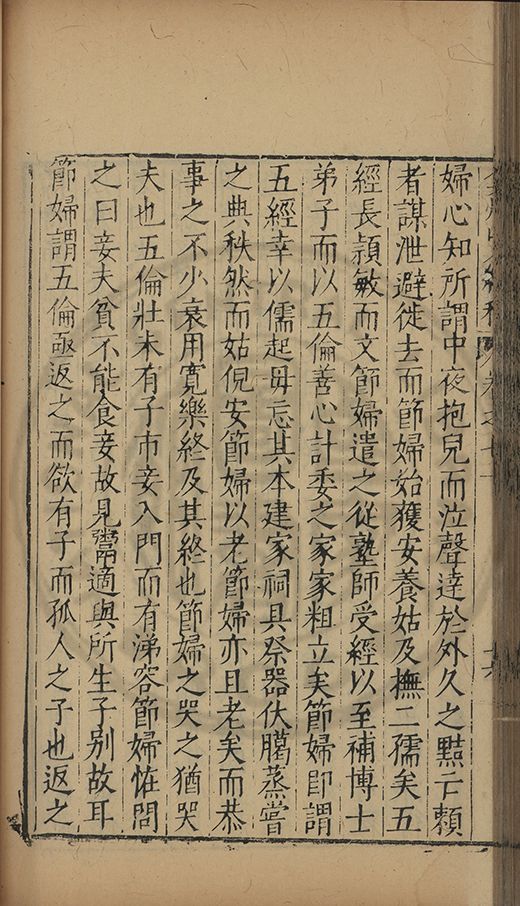 婦心知所謂中夜抱兒而泣聲達於外久之黠亡賴
者謀泄避徙去而節婦始獲安養姑及撫二孺矣五
經長頴敏而文節婦遣之從塾師受經以至補博士
弟子而以五倫善心計委之家家粗立矣節婦即謂
五經幸以儒起毋忘其本建家祠具祭器伏臈蒸嘗
之典秩然而姑倪安節婦以老節婦亦且老矣而恭
事之不少衰用寬樂終及其終也節婦之哭之猶哭
夫也五倫壯未有子市妾入門而有涕容節婦怪問
之曰妾夫貧不能食妾故見鬻適與所生子別故耳
節婦謂五倫亟返之而欲有子而孤人之子也返之
卷之七十